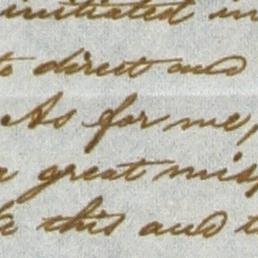 initiated in
to direct and
As for me,
great mis
this and t